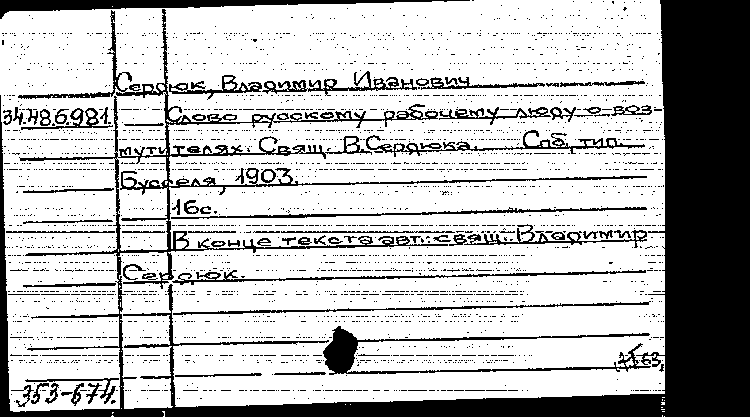 Сердюк, Владимир Иванович
34.48.6.981. Слово русскому рабочему люду о воз-
мутителях. Свящ. В. Сердюка. Спб, тип.
Бусселя, 1903.
16с.
В конце текста авт.: свящ. Владимир
Сердюк.
353-674.